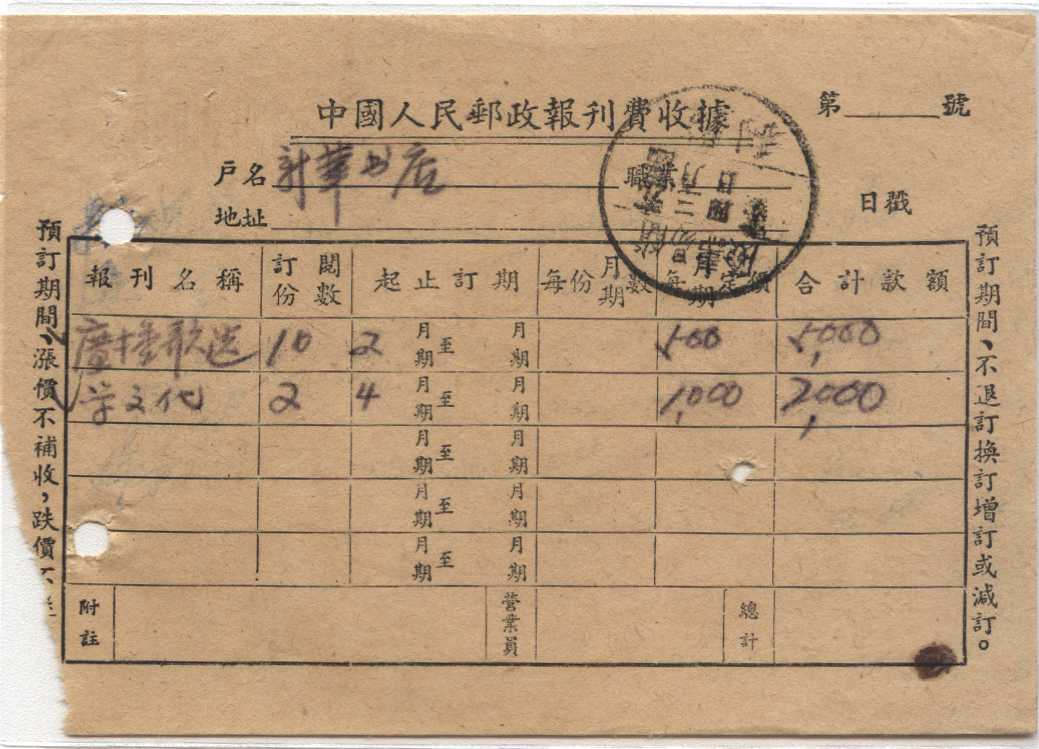 中國人民郵政報刊費收據
第 號
戶名 新華书店 職業
地址 日戳
預訂期間、漲價不補收，跌價不
報刊名稱 訂閱份數 起止訂期 每份月期數 每月期定價 合計款額
廣播歌选 10 2 月期至 月期 500 5,000
学文化 2 4 月期至 月期 1,000 2,000
月期至 月期
月期至 月期
月期至 月期
附註 營業員 總計
預訂期間、不退訂換訂增訂或減訂。